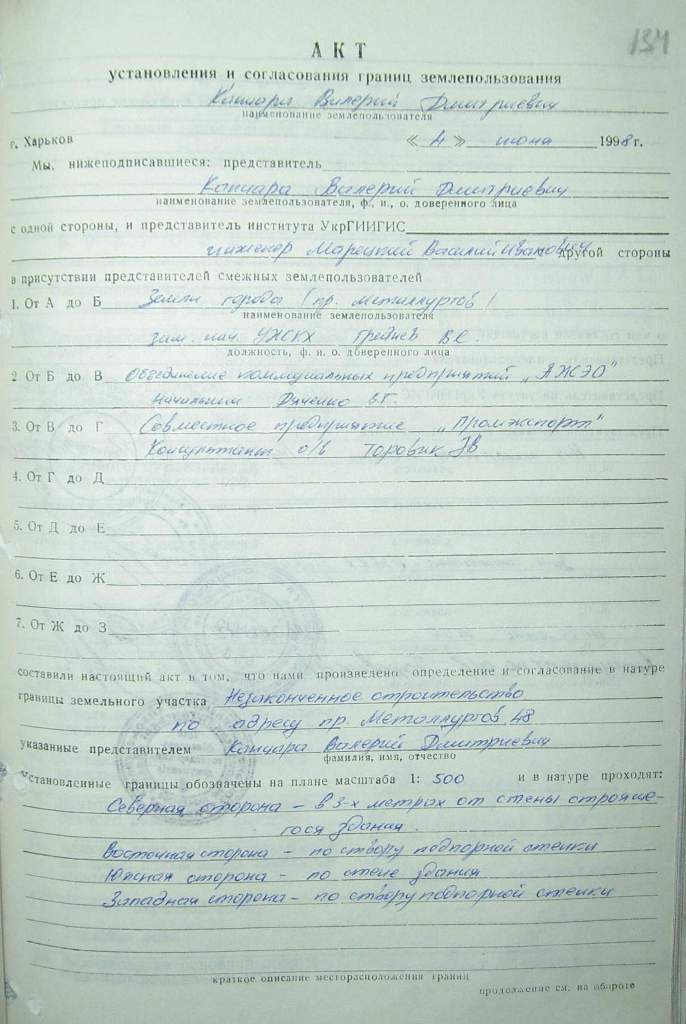 134
АКТ
установления и согласования границ землепользования
Капцара Валерий Дмитриевич
наименование землепользователя
г. Харьков « 4 » июня 1998 г.
Мы, нижеподписавшиеся: представитель
Капцара Валерий Дмитриевич
наименование землепользователя, ф., и., о. доверенного лица
с одной стороны, и представитель института УкрГИИГИС
инженер Марецкий Василий Иванович другой стороны
в присутствии представителей смежных землепользователей
1. От А до Б Земли города (пр. Металлургов)
наименование землепользователя
зам. нач. УЖКХ Гриднев В.С.
должность, ф. и. о. доверенного лица
2 От Б до В Объединение коммунальных предприятий „АЖЭО"
Начальник Дяченко В.Г.
3. От В до Г Совместное предприятие „Промэкспорт"
Консультант о/в Торовик
4. От Г до Д
5. От Д до Е
6. От Е до Ж
7. От Ж до З
составили настоящий акт в том, что нами произведено определение и согласование в натуре
границы земельного участка Незаконченное строительство
по адресу пр. Металлургов, 48
указанные представителем Капцара Валерий Дмитриевич
фамилия, имя, отчество
Установленные границы обозначены на плане масштаба 1: 500 и в натуре проходят:
Северная сторона – в 3-х метрах от стены строяще-
гося здания.
Восточная сторона – по створу подпорной стенки
Южная сторона – по стене здания
Западная сторона – по створу подпорной стенки
краткое описание месторасположения границ
продолжение см. на обороте